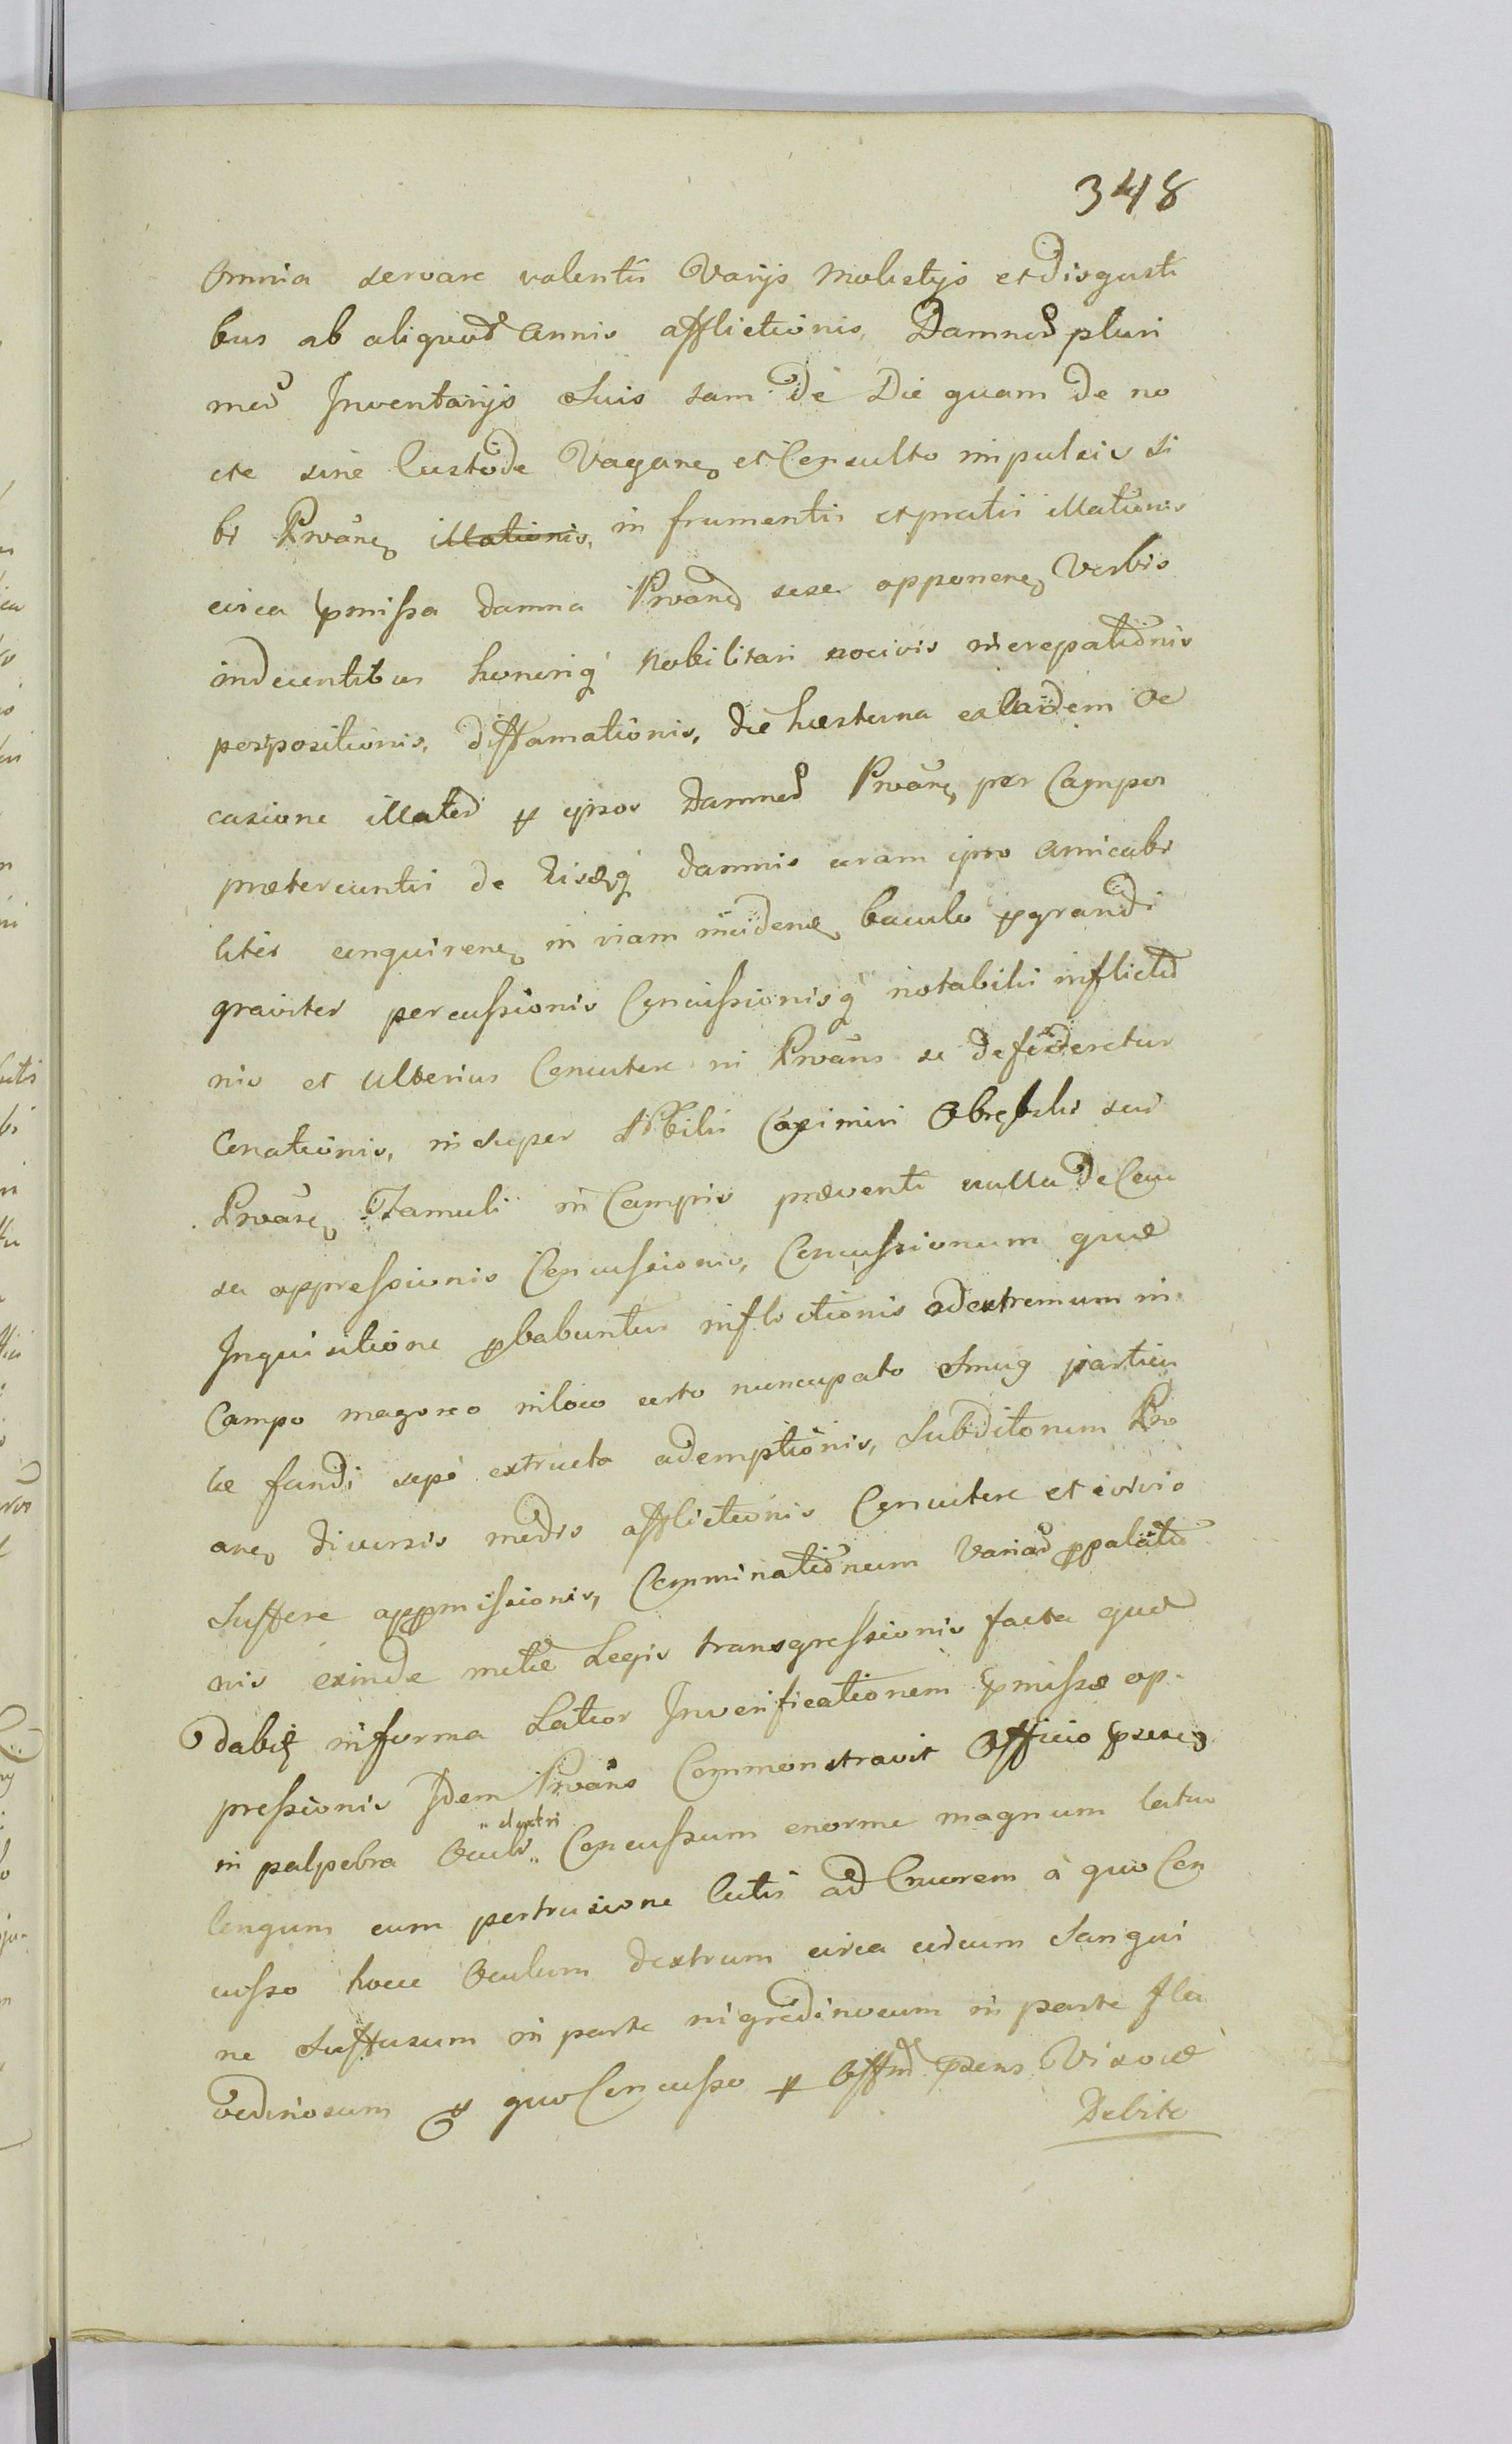 348
Omnia servare valentis Varijs Molestijs et disgusti
bus ab aliquod Annis afflictionis, Damnod pluri
mod Inventarijs Suis tam de Die quam de no
cte sine Custode Vagane et Consulto impulsis si
bi Proane illationis, in frumentis et pratis illationis
circa pmissa damna Proane sese opponene Verbis
indecentibus honoriq Nobilitari nocivis increpationis
postpositionis, diffamationis, die hesterna ex eadem oc
casione illatod p ipsos Damnod Proane per Campos
praetereuntis de eisdeq damnis coram ipso amicabi
liter conquirene in viam incidene baculo pgrandi
graviter percussionis Concussionisq notabilis inflictio
nis et ulterius Concutere ni Proans se defenderetur
Conationis, in super Nobilis Casimiri seu
Proane Famuli in Campis praeventi nulla de Cau
sa oppressionis Concussionis, Concussionum quae
Inquisitione pbabuntur inflictionis ad extremum in
Campo magoreo in loco certo nuncupato Smug particu
lae fundi sepe extructo ademptionis, Subditorum Pro
ane diversis modis afflictionis Concutere et
Suffere appmissionis, Comminationum Variad ppalatio
nis exinde metae Legis transgressionis facta quae
dabit in forma Latior In verificationem pmissae op-
pressionis Idem Proans Commonstravit Officio pnseq
in palpebra Oculi „dextri„ Concussum enorme magnum latum
longum cum pertrusione Cutis ad Cruorem à quo Con
cusso hocce Oculum dextrum circa circum Sangui
ne Suffusum in parte nigredinoeum in parte fla
vedinosum p quo Concusso p Offm psens Viso ac
Debite